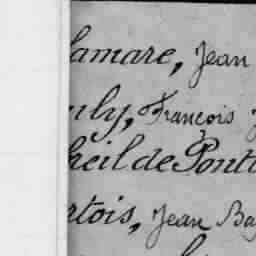 lamare, Jean
nly, François J
heil de Pont
rtois, Jean Ba